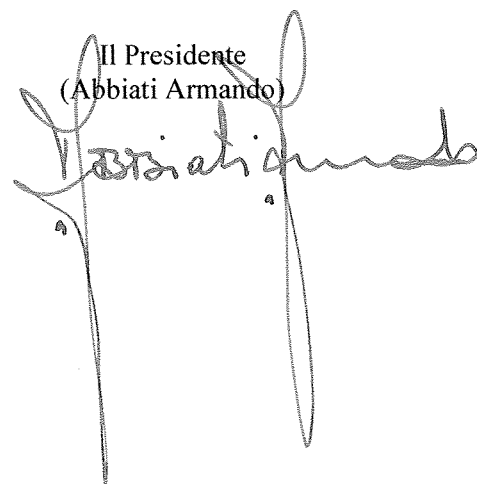 Il Presidente
(Abbiati Armando)
Abbiati Armando